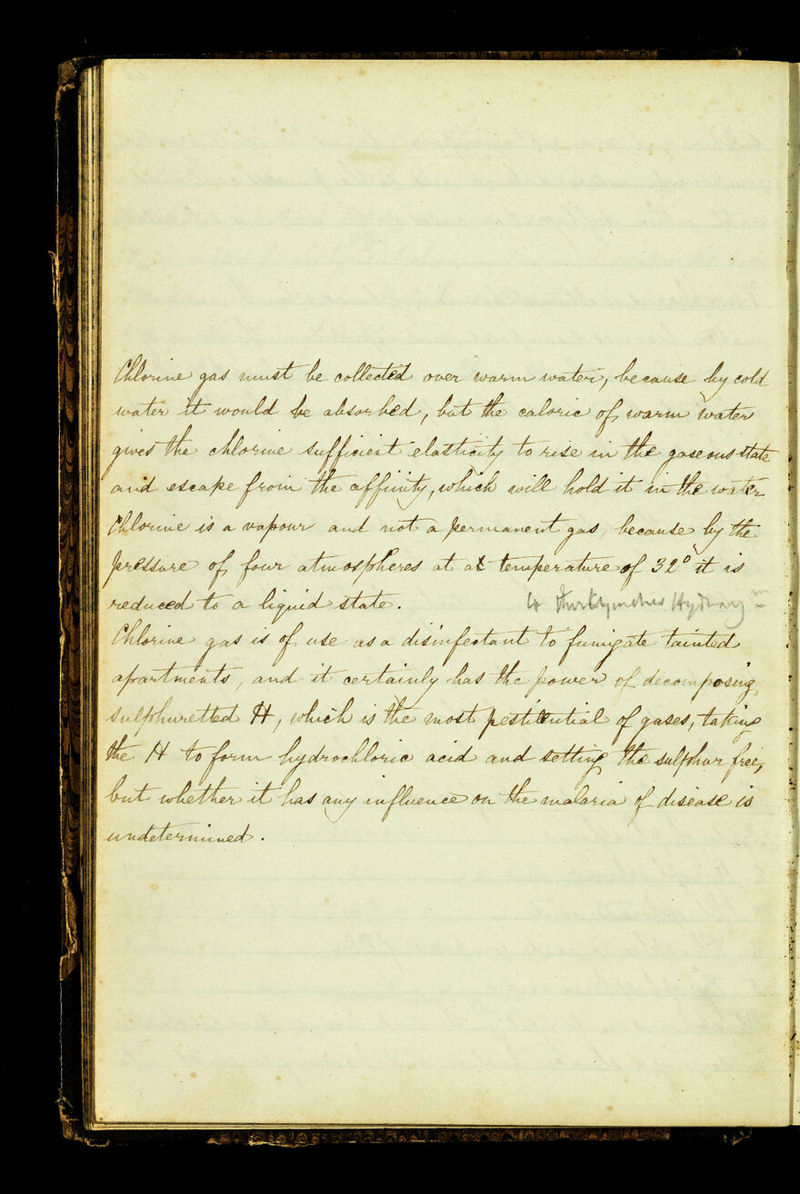 Chlorine gas must be collected over warm water, because by cold
water it would be absorbed, but the caloric of warm water
gives the chlorine sufficient elasticity to rise in the gaseous state
and escape from the affinity, which will hold it in the water
Chlorine is a vapour and not a permanent gas because by the
pressure of four atmospheres at at temperature of 32° it is
reduced to a liquid state.
Chlorine gas is of use as a disinfectant to fumigate tainted
apartments, and it certainly has the power of decomposing
sulphuretted H, which is the most pestilential of gases, taking
the H to form hydrochloric acid and setting the sulphur free,
but whether it has any influence on the malaria of disease is
undetermined.